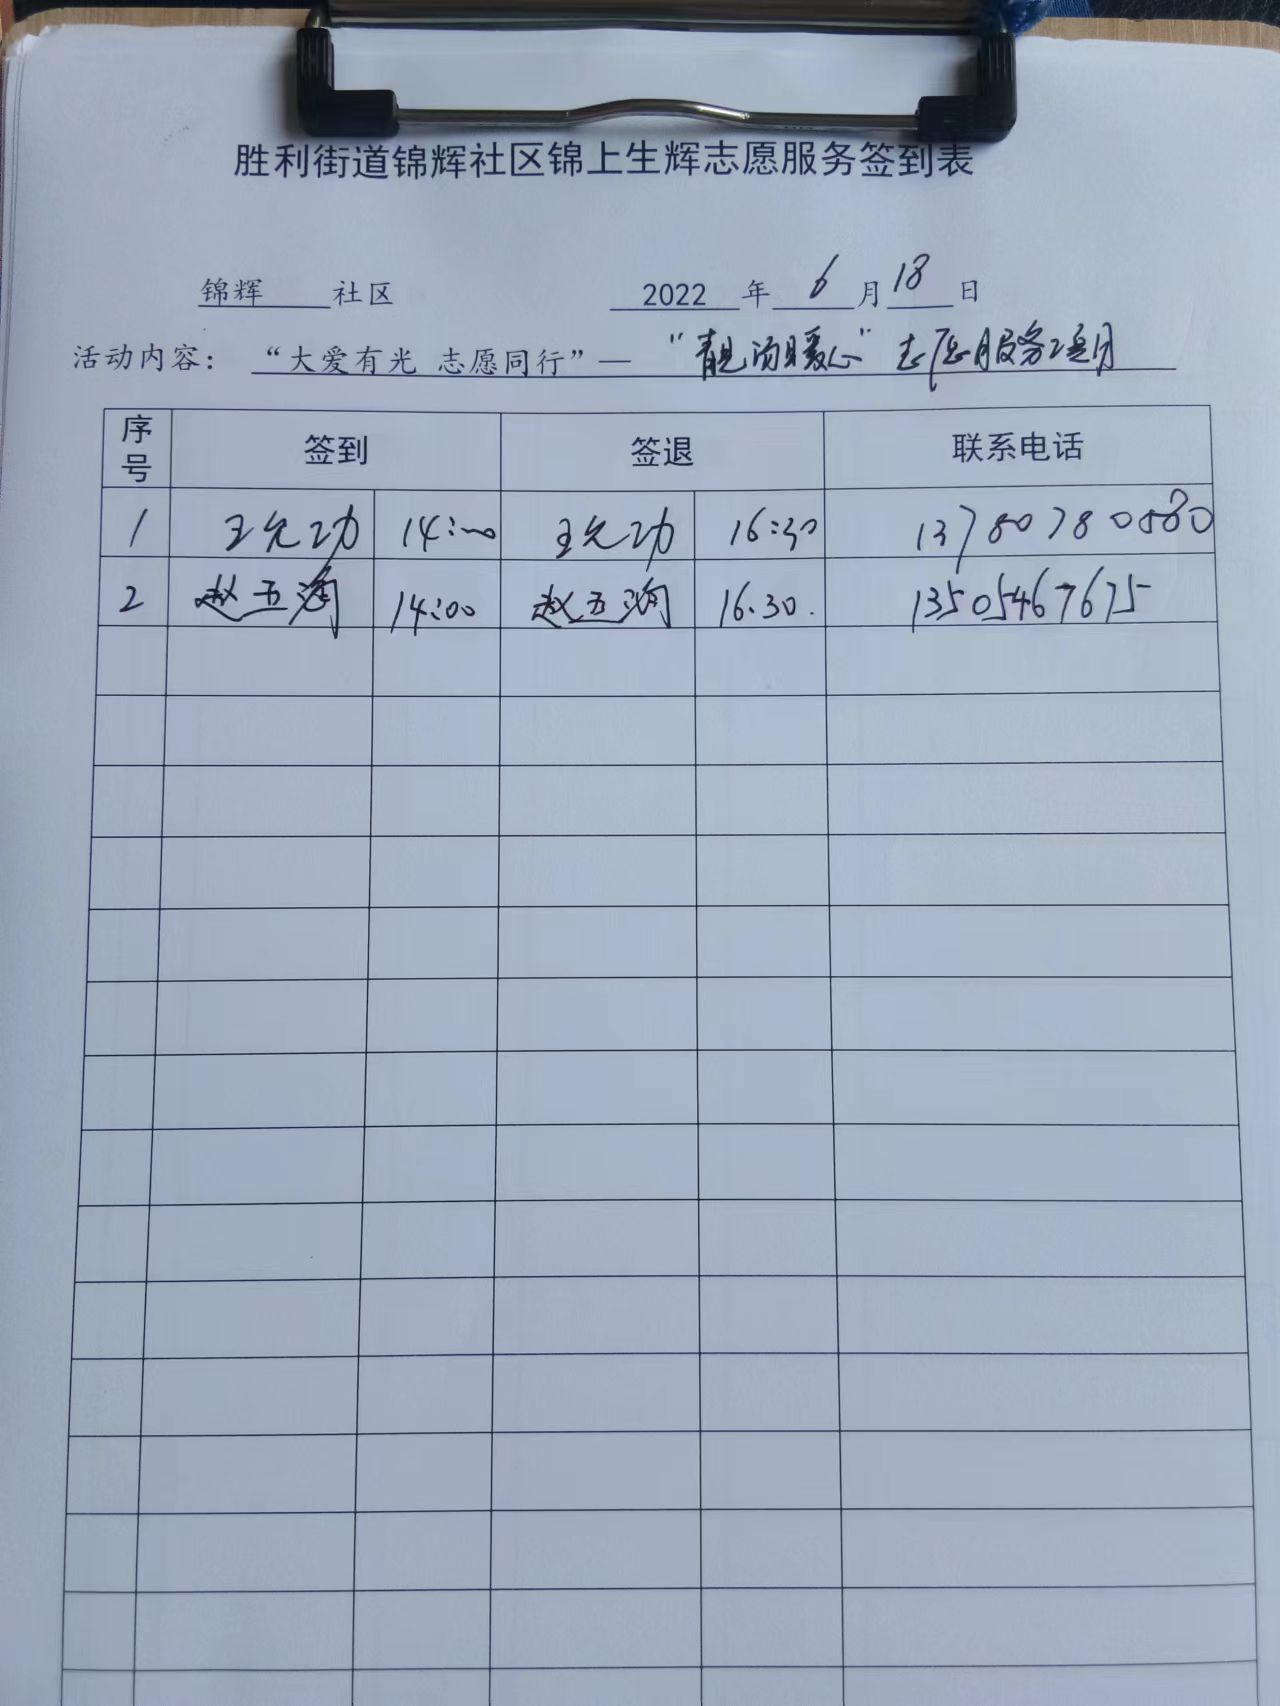 胜利街道锦辉社区锦上生辉志愿服务签到表
锦辉 社区 2022 年 6 月 18 日
活动内容： “大爱有光 志愿同行”— “靓 暖心” 志愿服务 活动
序号 签到 签退 联系电话
1 王允功 14:00 王允功 16:30
2 赵玉海 14:00 赵玉海 16.30. 13505467675